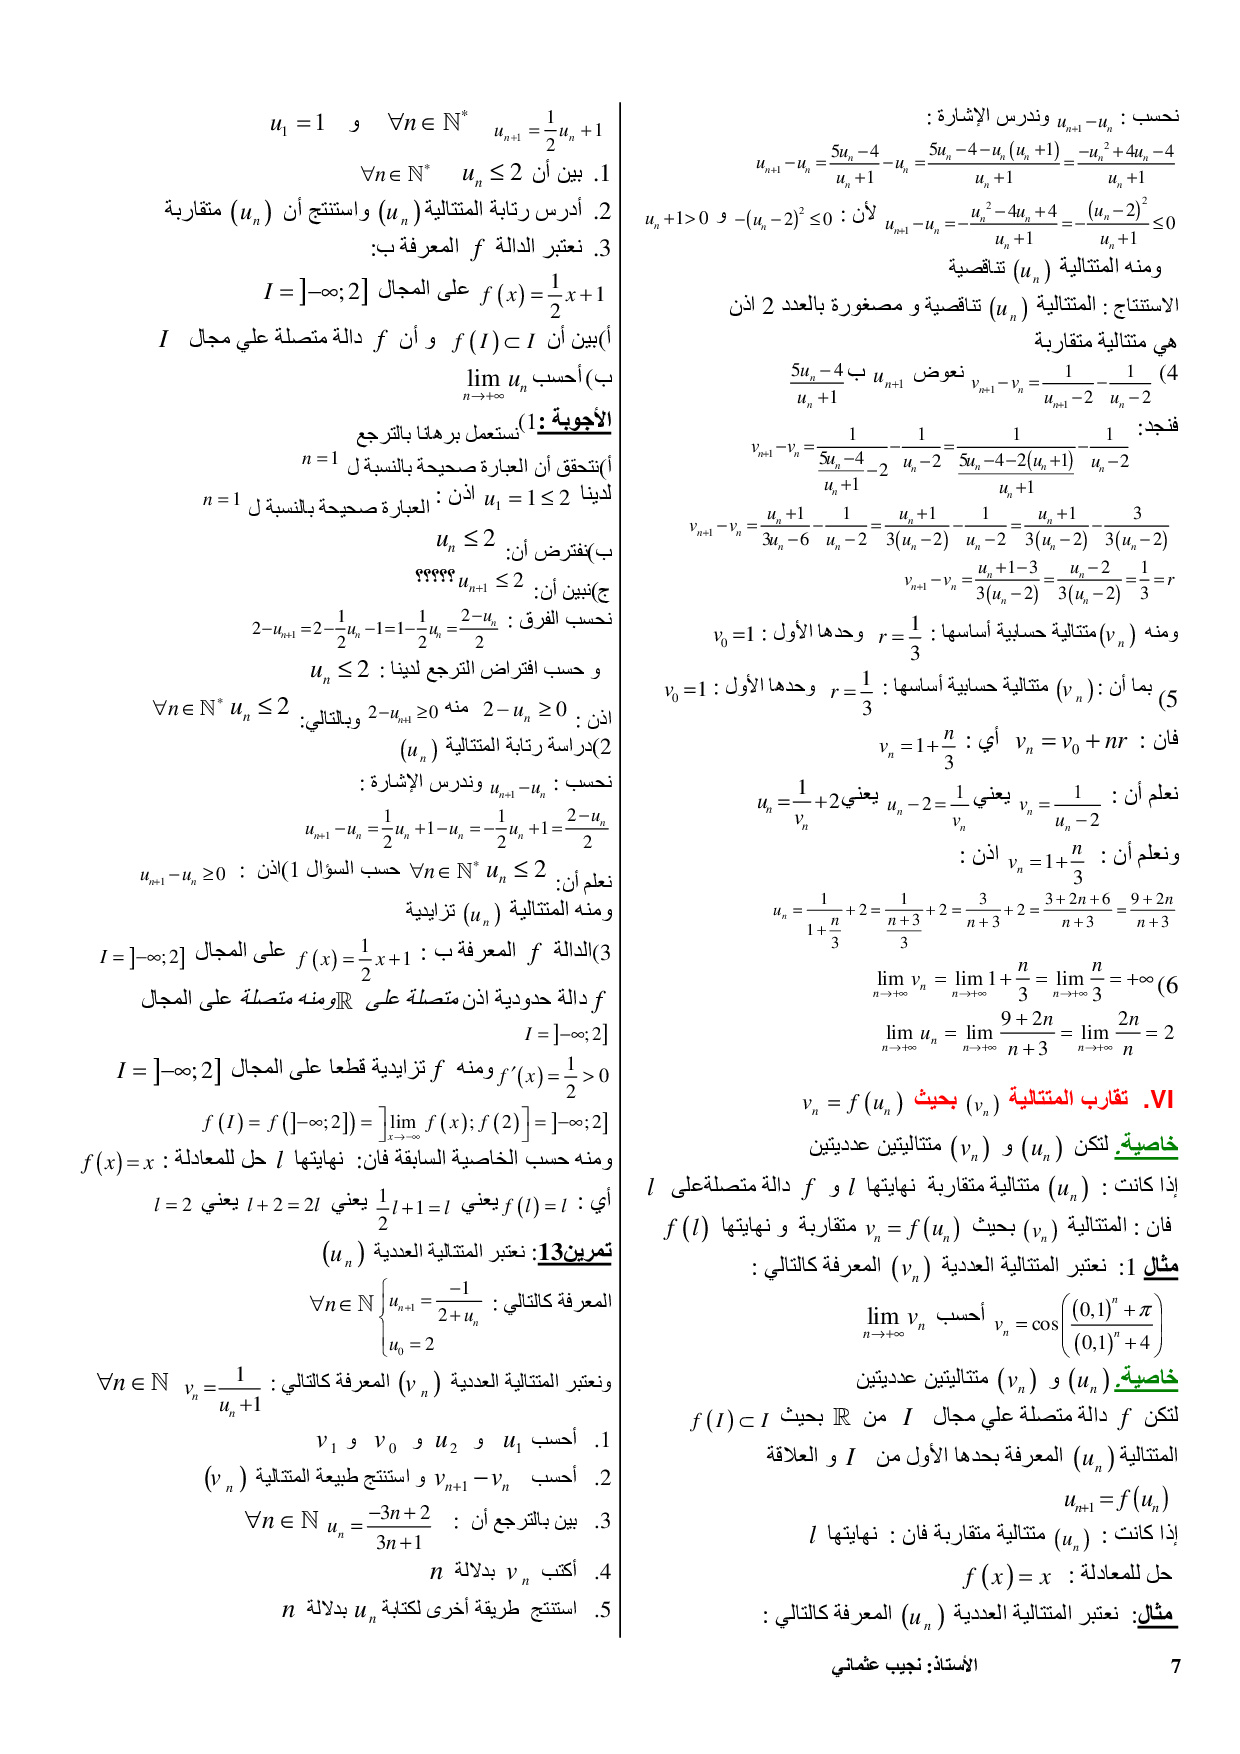 نحسب : $u_{n+1}-u_n$ وندرس الإشارة :
$u_{n+1}-u_n=\frac{5u_n-4}{u_n+1}-u_n=\frac{5u_n-4-u_n(u_n+1)}{u_n+1}=\frac{-u_n^2+4u_n-4}{u_n+1}$
$u_{n+1}-u_n=-\frac{u_n^2-4u_n+4}{u_n+1}=-\frac{(u_n-2)^2}{u_n+1}\leq 0$ لأن : $-(u_n-2)^2\leq 0$ و $u_n+1>0$
ومنه المتتالية $(u_n)$ تناقصية
الاستنتاج : المتتالية $(u_n)$ تناقصية و مصغورة بالعدد 2 اذن
هي متتالية متقاربة
4) $v_{n+1}-v_n=\frac{1}{u_{n+1}-2}-\frac{1}{u_n-2}$ نعوض $u_{n+1}$ ب $\frac{5u_n-4}{u_n+1}$
فنجد: $v_{n+1}-v_n=\frac{1}{\frac{5u_n-4}{u_n+1}-2}-\frac{1}{u_n-2}=\frac{1}{\frac{5u_n-4-2(u_n+1)}{u_n+1}}-\frac{1}{u_n-2}$
$v_{n+1}-v_n=\frac{u_n+1}{3u_n-6}-\frac{1}{u_n-2}=\frac{u_n+1}{3(u_n-2)}-\frac{1}{u_n-2}=\frac{u_n+1}{3(u_n-2)}-\frac{3}{3(u_n-2)}$
$v_{n+1}-v_n=\frac{u_n+1-3}{3(u_n-2)}=\frac{u_n-2}{3(u_n-2)}=\frac{1}{3}=r$
ومنه $(v_n)$ متتالية حسابية أساسها : $r=\frac{1}{3}$ وحدها الأول : $v_0=1$
5) بما أن : $(v_n)$ متتالية حسابية أساسها : $r=\frac{1}{3}$ وحدها الأول : $v_0=1$
فان : $v_n=v_0+nr$ أي : $v_n=1+\frac{n}{3}$
نعلم أن : $v_n=\frac{1}{u_n-2}$ يعني $u_n-2=\frac{1}{v_n}$ يعني $u_n=\frac{1}{v_n}+2$
ونعلم أن : $v_n=1+\frac{n}{3}$ اذن :
$u_n=\frac{1}{1+\frac{n}{3}}+2=\frac{1}{\frac{n+3}{3}}+2=\frac{3}{n+3}+2=\frac{3+2n+6}{n+3}=\frac{9+2n}{n+3}$
6) $\lim_{n\to+\infty}v_n=\lim_{n\to+\infty}1+\frac{n}{3}=\lim_{n\to+\infty}\frac{n}{3}=+\infty$
$\lim_{n\to+\infty}u_n=\lim_{n\to+\infty}\frac{9+2n}{n+3}=\lim_{n\to+\infty}\frac{2n}{n}=2$
VI. تقارب المتتالية $(v_n)$ بحيث $v_n=f(u_n)$
خاصية. لتكن $(u_n)$ و $(v_n)$ متتاليتين عدديتين
إذا كانت : $(u_n)$ متتالية متقاربة نهايتها $l$ و $f$ دالة متصلةعلى $l$
فان : المتتالية $(v_n)$ بحيث $v_n=f(u_n)$ متقاربة و نهايتها $f(l)$
مثال 1: نعتبر المتتالية العددية $(v_n)$ المعرفة كالتالي :
$v_n=\cos\left(\frac{(0,1)^n+\pi}{(0,1)^n+4}\right)$ أحسب $\lim_{n\to+\infty}v_n$
خاصية. $(u_n)$ و $(v_n)$ متتاليتين عدديتين
لتكن $f$ دالة متصلة علي مجال $I$ من $\mathbb{R}$ بحيث $f(I)\subset I$
المتتالية $(u_n)$ المعرفة بحدها الأول من $I$ و العلاقة
$u_{n+1}=f(u_n)$
إذا كانت : $(u_n)$ متتالية متقاربة فان : نهايتها $l$
حل للمعادلة : $f(x)=x$
مثال: نعتبر المتتالية العددية $(u_n)$ المعرفة كالتالي :
$u_{n+1}=\frac{1}{2}u_n+1$ $\forall n\in\mathbb{N}^*$ و $u_1=1$
1. بين أن $u_n\leq 2$ $\forall n\in\mathbb{N}^*$
2. أدرس رتابة المتتالية $(u_n)$ واستنتج أن $(u_n)$ متقاربة
3. نعتبر الدالة $f$ المعرفة ب:
$f(x)=\frac{1}{2}x+1$ على المجال $I=]-\infty;2]$
أ)بين أن $f(I)\subset I$ و أن $f$ دالة متصلة علي مجال $I$
ب)أحسب $\lim_{n\to+\infty}u_n$
الأجوبة :1)نستعمل برهانا بالترجع
أ)نتحقق أن العبارة صحيحة بالنسبة ل $n=1$
لدينا $u_1=1\leq 2$ اذن : العبارة صحيحة بالنسبة ل $n=1$
ب)نفترض أن: $u_n\leq 2$
ج)نبين أن: $u_{n+1}\leq 2$ ؟؟؟؟؟
نحسب الفرق : $2-u_{n+1}=2-\frac{1}{2}u_n-1=1-\frac{1}{2}u_n=\frac{2-u_n}{2}$
و حسب افتراض الترجع لدينا : $u_n\leq 2$
اذن : $2-u_n\geq 0$ منه $2-u_{n+1}\geq 0$ وبالتالي: $u_n\leq 2$ $\forall n\in\mathbb{N}^*$
2)دراسة رتابة المتتالية $(u_n)$
نحسب : $u_{n+1}-u_n$ وندرس الإشارة :
$u_{n+1}-u_n=\frac{1}{2}u_n+1-u_n=-\frac{1}{2}u_n+1=\frac{2-u_n}{2}$
نعلم أن: $u_n\leq 2$ $\forall n\in\mathbb{N}^*$ حسب السؤال 1)اذن : $u_{n+1}-u_n\geq 0$
ومنه المتتالية $(u_n)$ تزايدية
3)الدالة $f$ المعرفة ب : $f(x)=\frac{1}{2}x+1$ على المجال $I=]-\infty;2]$
$f$ دالة حدودية اذن متصلة على $\mathbb{R}$ ومنه متصلة على المجال
$I=]-\infty;2]$
$f'(x)=\frac{1}{2}>0$ ومنه $f$ تزايدية قطعا على المجال $I=]-\infty;2]$
$f(I)=f(]-\infty;2])=\left]\lim_{x\to-\infty}f(x);f(2)\right]=]-\infty;2]$
ومنه حسب الخاصية السابقة فان: نهايتها $l$ حل للمعادلة : $f(x)=x$
أي : $f(l)=l$ يعني $\frac{1}{2}l+1=l$ يعني $l+2=2l$ يعني $l=2$
تمرين13: نعتبر المتتالية العددية $(u_n)$
المعرفة كالتالي : $\begin{cases}u_{n+1}=\frac{-1}{2+u_n}\\u_0=2\end{cases}$ $\forall n\in\mathbb{N}$
ونعتبر المتتالية العددية $(v_n)$ المعرفة كالتالي : $v_n=\frac{1}{u_n+1}$ $\forall n\in\mathbb{N}$
1. أحسب $u_1$ و $u_2$ و $v_0$ و $v_1$
2. أحسب $v_{n+1}-v_n$ و استنتج طبيعة المتتالية $(v_n)$
3. بين بالترجع أن : $u_n=\frac{-3n+2}{3n+1}$ $\forall n\in\mathbb{N}$
4. أكتب $v_n$ بدلالة $n$
5. استنتج طريقة أخرى لكتابة $u_n$ بدلالة $n$
الأستاذ: نجيب عثماني
7